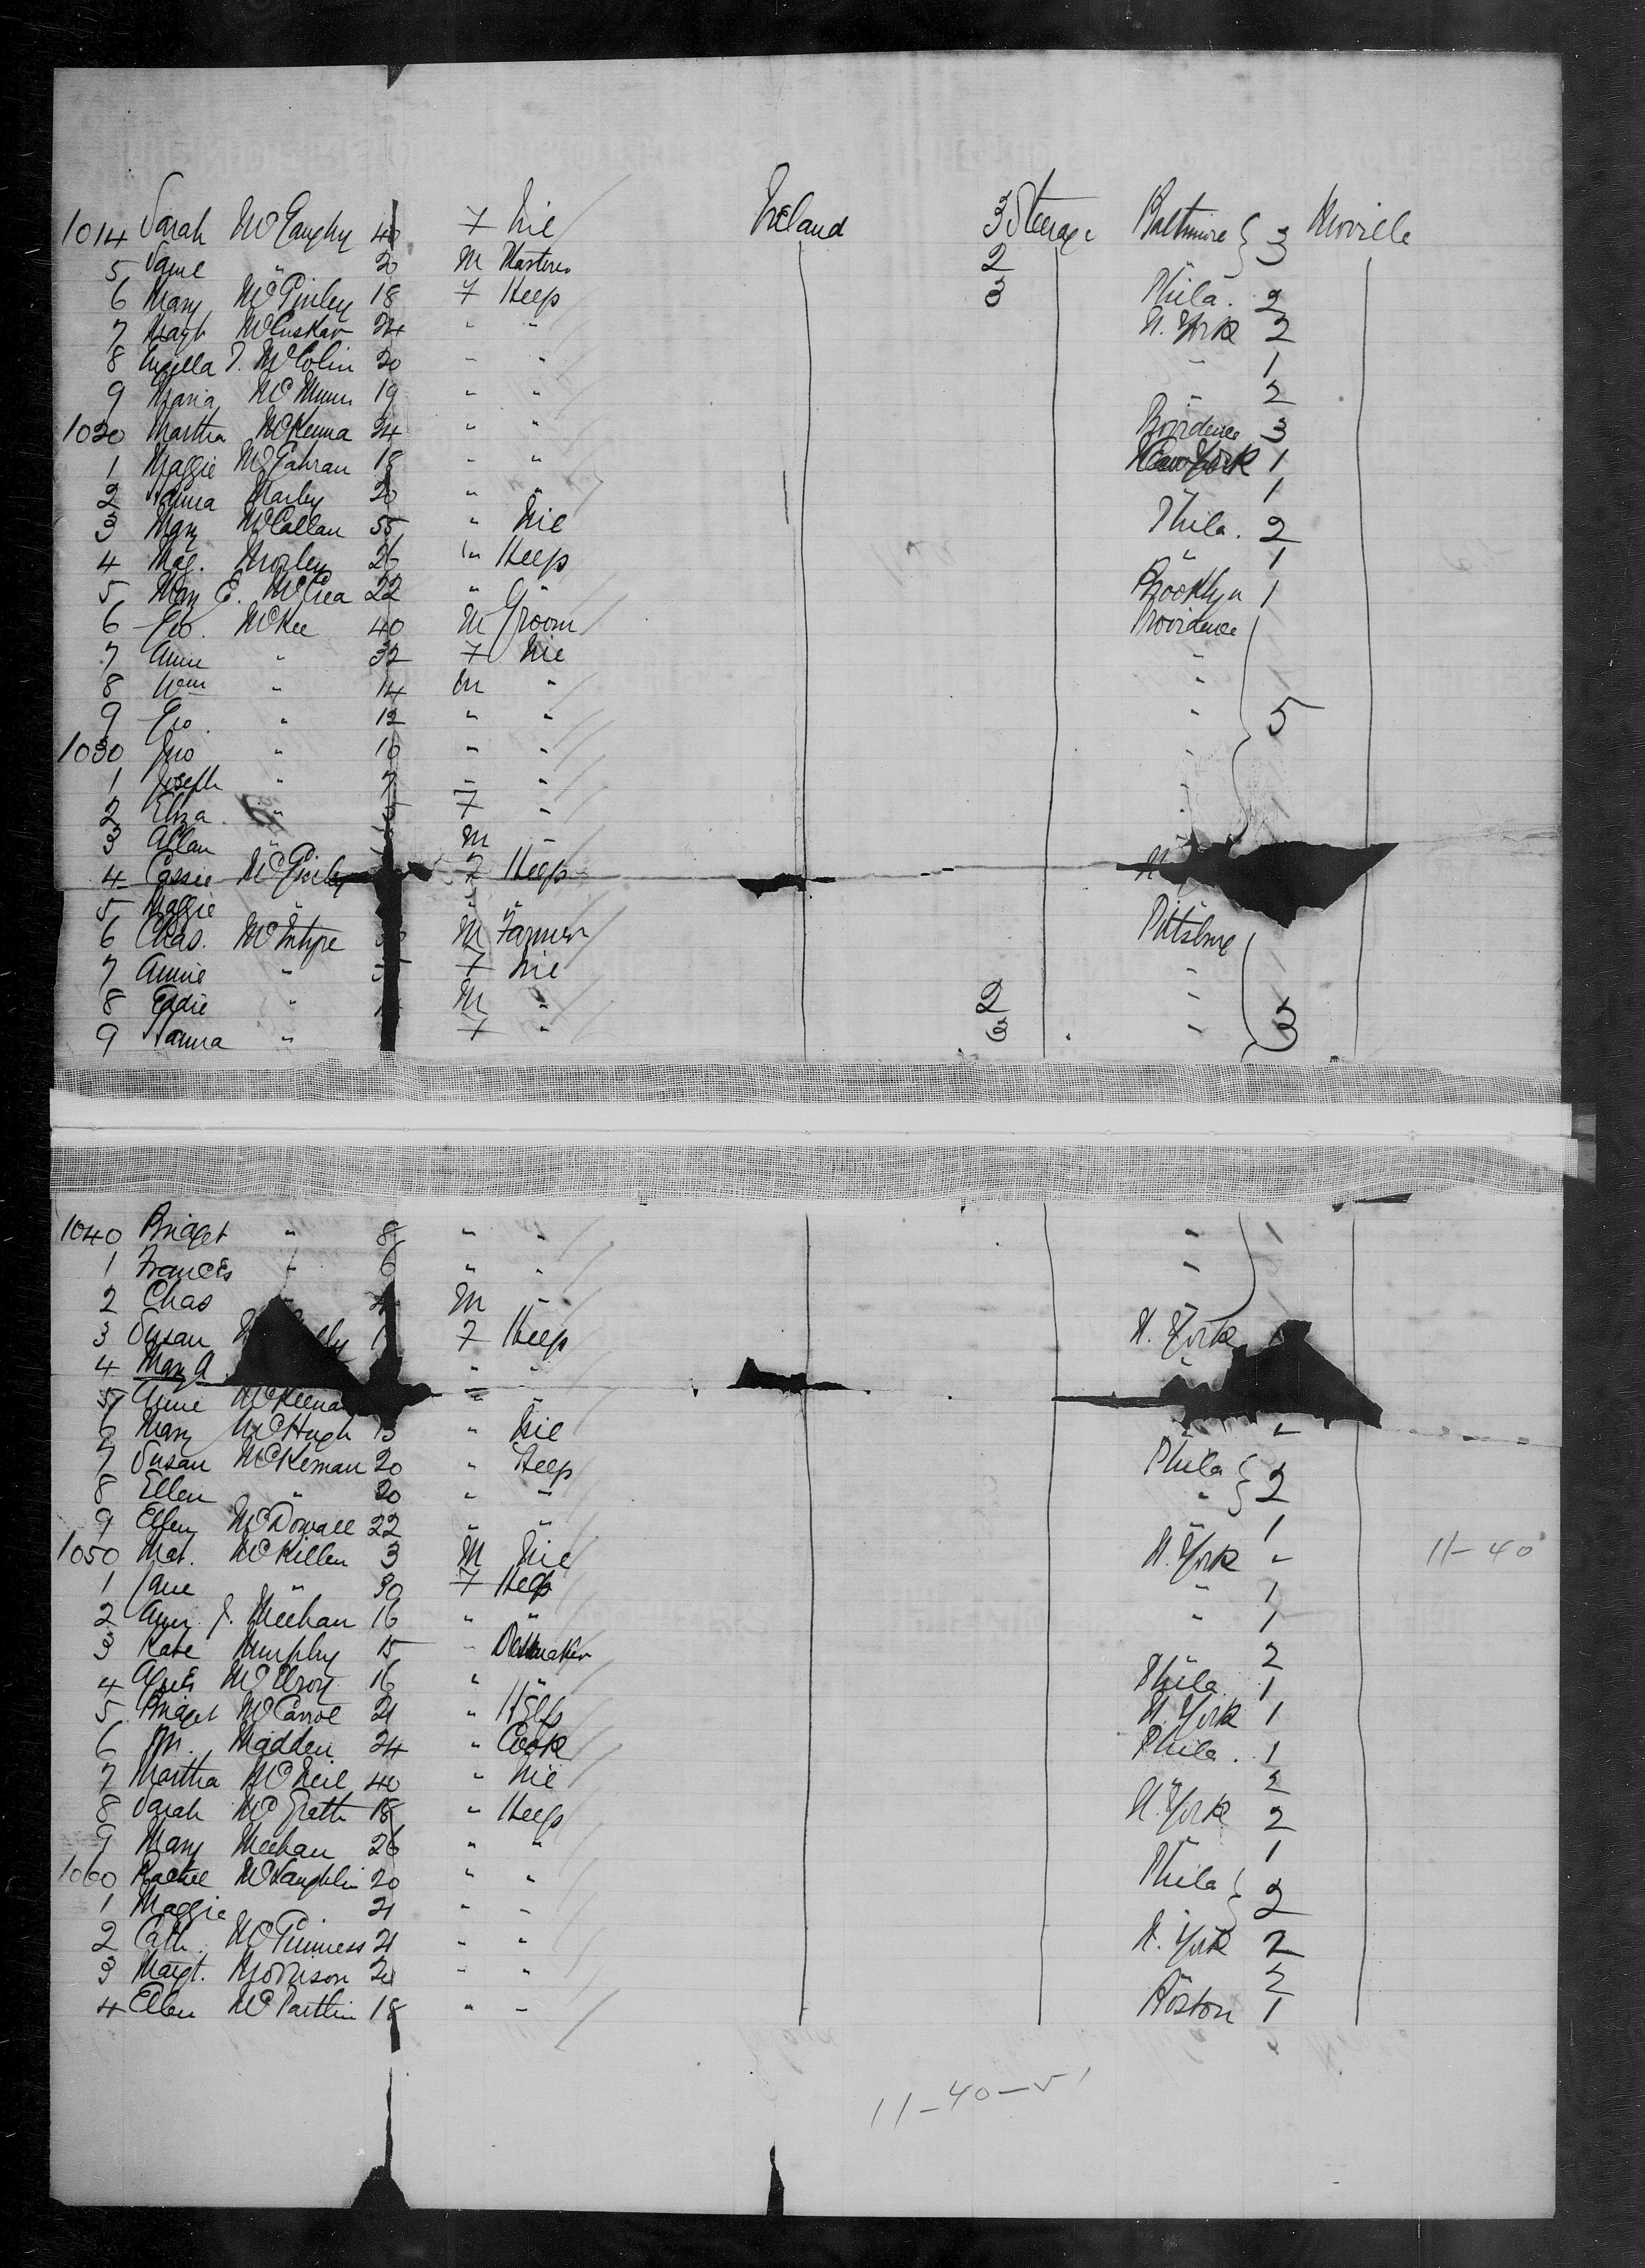 1014 Sarah McGaughy 40 F Nil Ireland 3 Steerage Baltimore 3 Moville
5 Saml " 20 M 2
6 Mary McGinley 18 F Help 3 Phila. 2
7 Magt McCuskar 24 " " N. York 2
8 J. McColin 20 " " " 1
9 Maria McMunn 19 " " " 2
1020 Martha McKenna 24 " " Providence 3
1 Maggie McGahran 18 " " New York 1
2 Hanna Marley 20 " " " 1
3 Mary McCallan 55 " Nil Phila. 2
4 Mag. Morley 26 " Help " 1
5 Mary E. McCrea 22 " " Brooklyn 1
6 Geo. McKee 40 M Groom Providence
7 Anne " 32 F Nil "
8 Wm " 14 M " "
9 Geo. " 12 " " " 5
1030 Jno " 10 " " "
1 Joseph " 7 " " "
2 Eliza " 5 F " "
3 Allan " M "
4 Cassie McGinley F Help N
5 Maggie " " "
6 Chas. McIntyre M Farmer Pittsburg
7 Annie " F Nil "
8 Eddie " M " 2 "
9 Hanna " F " 6 " 3
1040 Bridget " 8 " " "
1 Frances " 6 " " "
2 Chas " 4 M "
3 Susan F Help N. York
4 Mary A " "
5 Annie " "
6 Mary McHugh 13 " Nil " "
7 Susan McKernan 20 " Help Phila 2
8 Ellen " 20 " " "
9 Ellen McDowall 22 " " " 1
1050 Mat. McKillen 3 M Nil N. York " 11-40
1 Jane " 30 F Help " 1
2 Ann J. Meehan 16 " " " 1
3 Kate Murphy 15 " Dressmaker " 2
4 Agnes McElroy 16 " " Phila 1
5 Bridget McCarrol 21 " Help N. York 1
6 M. Madden 24 " Cook Phila. 1
7 Martha McNeil 40 " Nil " 2
8 Sarah McGrath 18 " Help N. York 2
9 Mary Meehan 26 " " " 1
1060 Rachel McLaughlin 20 " " Phila 2
1 Maggie " 21 " " "
2 Cath. McGuinness 21 " " N. York 2
3 Margt. Morrison 20 " " " 2
4 Ellen McPartlin 18 " " Boston 1
11-40-51